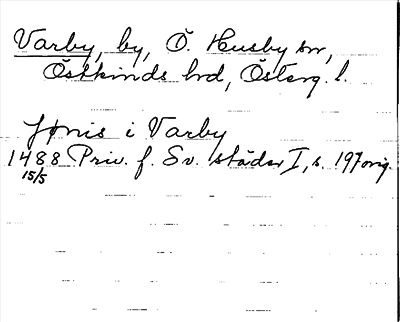 Varby, by, Ö. Husby sn,
Östkinds hd, Österg. l.
Jönis i Varby
1488 Priv. f. Sv. städer I, s. 197 orig.
15/5